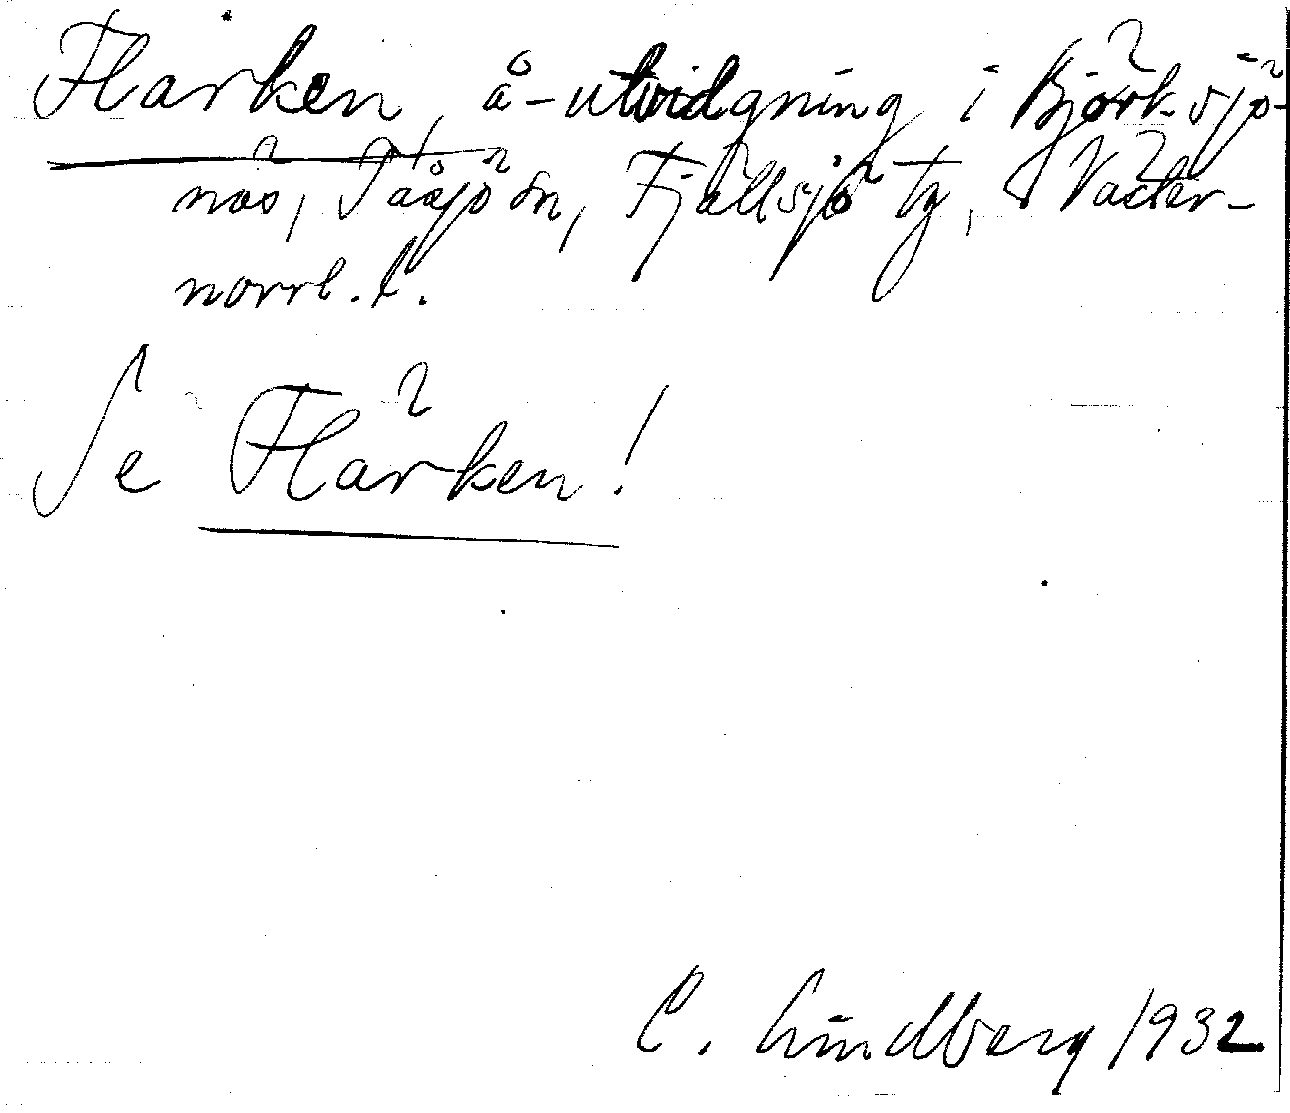 Flarken, å-utvidgning i Björksjö-
näs, Tåsjö sn, Fjällsjö tg, Väster-
norrl. l.
Se Flärken!
C. Lindberg 1932